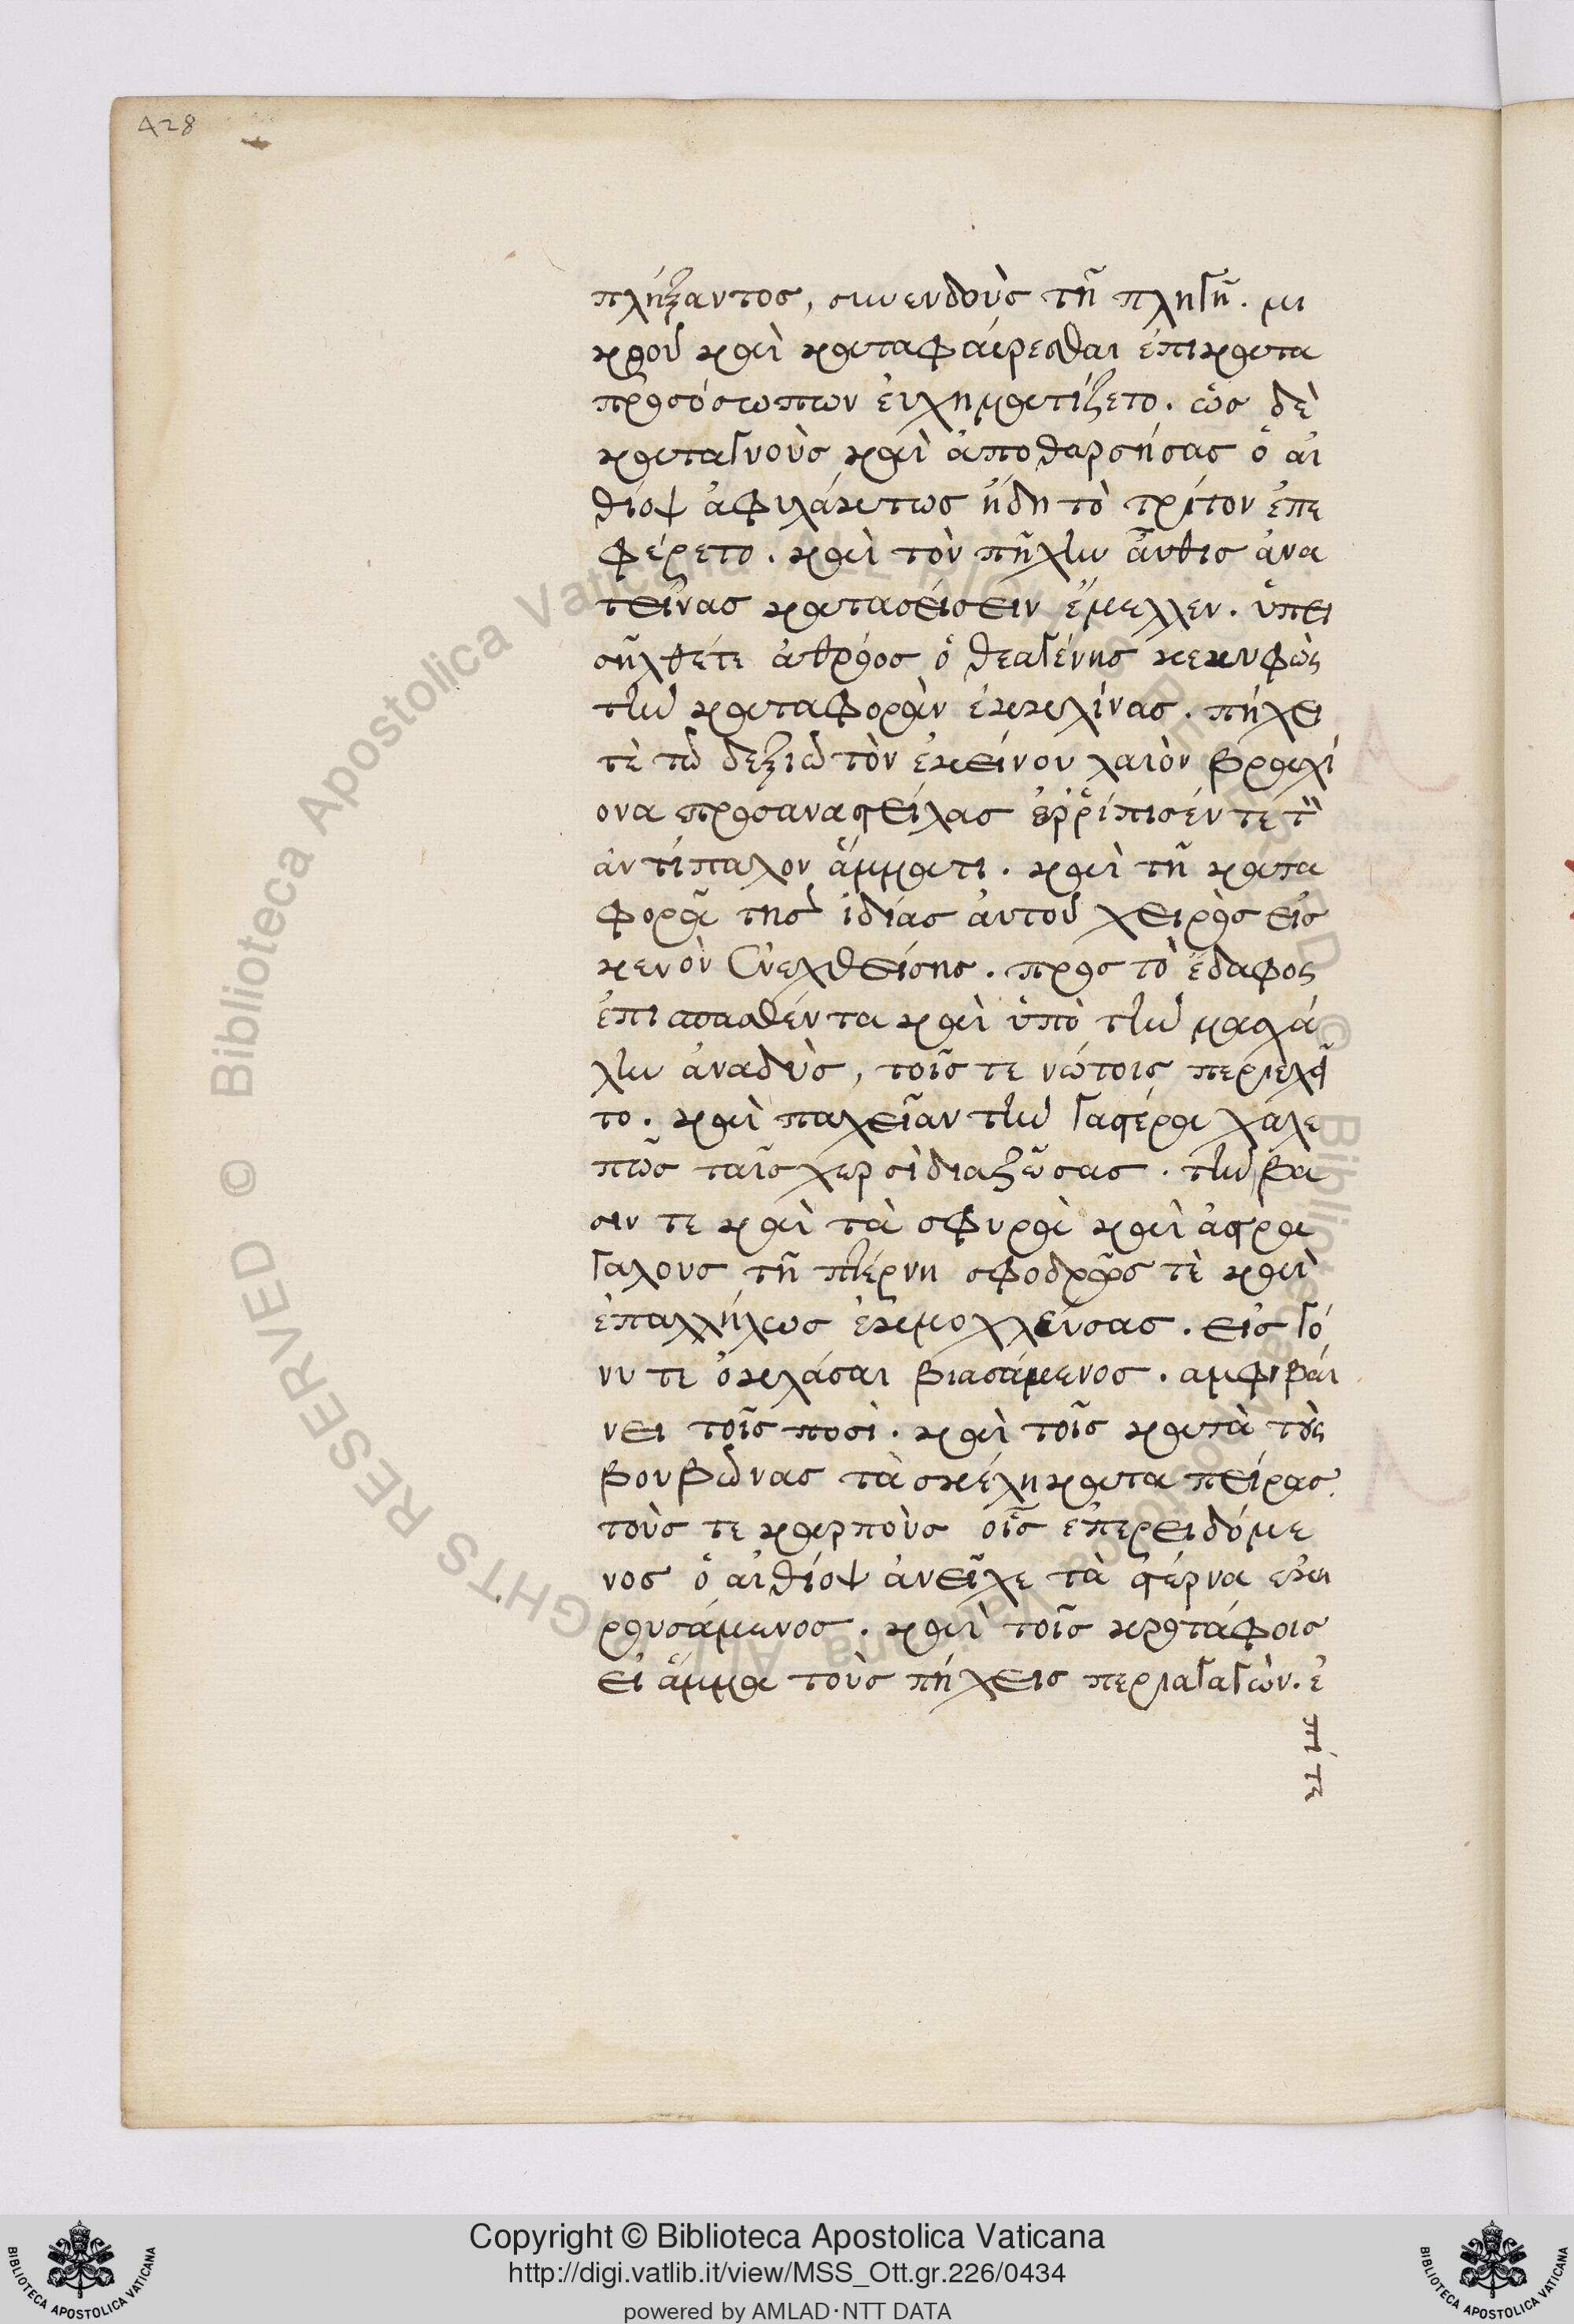 428
πλήξαντος, συνενδοὺς τῆ πληγῆ. μι
κροῦ καὶ καταφαίρεσθαι ἐπικατα
προσόσωπων ἐιχηματίζετο. ὡς δὲ
καταγνοὺς καὶ ἀποθαρσήσας ὁ αἰ
θίοψ ἀφυλάκτως ἤδη τὸ τρίτον ἐπε
φέρετο. καὶ τὸν πῆχυν ἆυθις ἀνα
τείνας κατασείσειν ἔμελλεν. ὑπει
σῆλθέτε ἀθρόος ὁ θεαγένης κεκυφὼς
τὴν καταφορὰν ἐκκλίνας. πήχει
τὲ τῶ δεξιῶ τὸν ἐκείνου λαιὸν βραχί
ονα προσαναστείλας ἐῤῥίπισέν τέ τὸν
ἀντίπαλον ἅμματι. καὶ τῆ κατα
φορᾶ τῆς ἰδίας ἀυτοῦ χειρὸς εἰς
κενὸν ἐνελθείσης. πρὸς τὸ ἔδαφος
ἐπισπασθέντα καὶ ὑπὸ τὴν μασχά
λην ἀναδὺς, τοῖς τε νώτοις περιεχεῖ
το. καὶ παχεῖαν τὴν γαστέρα χαλε
πῶς ταῖς χερσὶ διαζεύσας. τὴν βά
σιν τε καὶ τὰ σφυρὰ καὶ ἀστρα
γάλους τῆ πτέρνη σφοδρῶς τὲ καὶ
ἐπαλλήλως ἐκμοχλεύσας. εἰς γό
νυ τε ὀκλάσαι βιασάμενος. αμφιβαί
νει τοῖς ποσὶ. καὶ τοῖς κατὰ τοὺς
βουβῶνας τὰ σκέλη καταπείρας.
τοὺς τε καρποὺς οἷς ἐπερειδόμε
νος ὁ αἰθίοψ ἀνεῖχε τὰ στέρνα ἐκκ
ρουσάμενος. καὶ τοῖς κροτάφοις
εἰ ἅμμα τοὺς πήχεις περιαγαγών. ἐ
πί τε
Copyright © Biblioteca Apostolica Vaticana
http://digi.vatlib.it/view/MSS_Ott.gr.226/0434
powered by AMLAD·NTT DATA